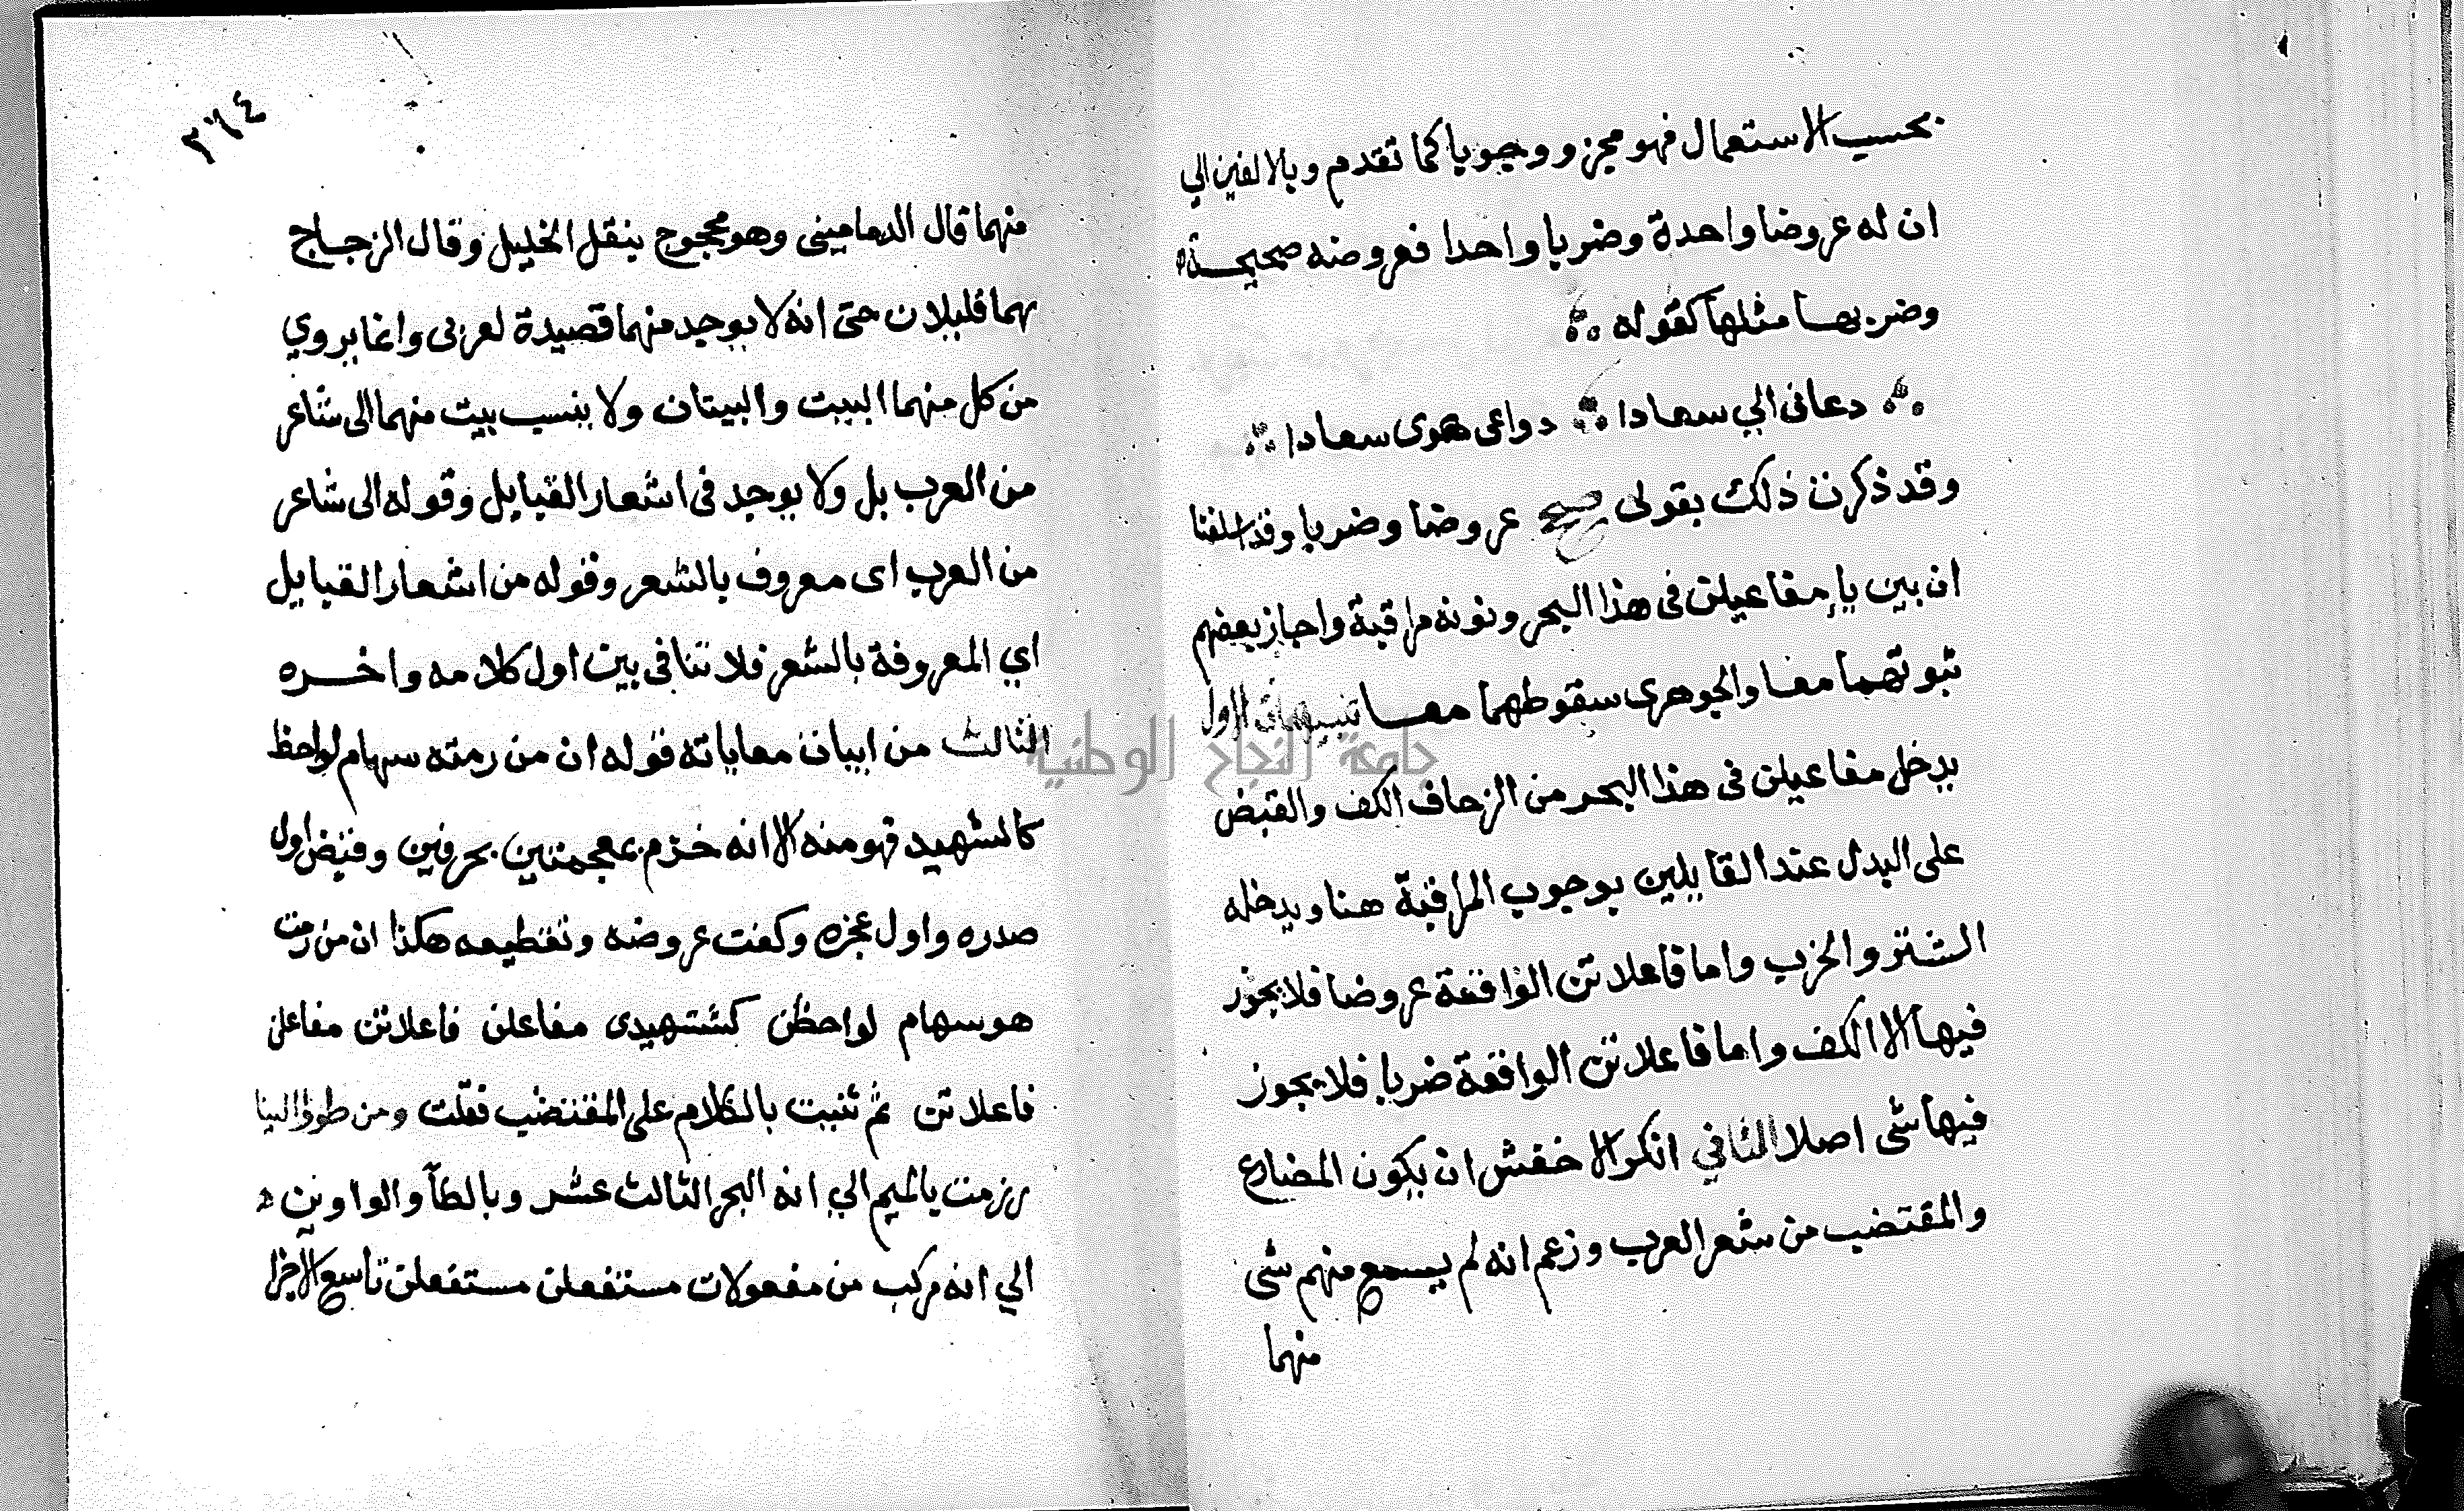 بحسب الاستعمال فهو مجزو وجوبا كما تقدم وبالالفين الي
ان له عروضا واحدة وضربا واحدا فعروضه صحيحة
وضربها مثلها كقوله
دعاني الي سعادا دواعي هوى سعادا
وقد ذكرت ذلك بقولي صحيح عروضا وضربا وقد اسلفنا
ان بين ياء مفاعيلن في هذا البحر ونونه مراقبة واجاز بعضهم
ثبوتهما معا والجوهري سقوطهما معا تنبيهان الاول
يدخل مفاعيلن في هذا البحر من الزحاف الكف والقبض
على البدل عند القايلين بوجوب المراقبة هنا ويدخله
الشتر والخرب واما فاعلاتن الواقعة عروضا فلا يجوز
فيها الا الكف واما فاعلاتن الواقعة ضربا فلا يجوز
فيها شي اصلا الثاني انكر الاخفش ان يكون المضارع
والمقتضب من شعر العرب وزعم انه لم يسمع منهم شي
منهما
٣١٤
منهما قال الدماميني وهو محجوج بنقل الخليل وقال الزجاج
هما قليلان حتى انه لا يوجد منهما قصيدة لعربي وانما يروي
من كل منهما البيت والبيتان ولا ينسب بيت منهما الى شاعر
من العرب بل ولا يوجد في اشعار القبايل وقوله الى شاعر
من العرب اى معروف بالشعر وقوله من اشعار القبايل
اي المعروفة بالشعر فلا تنافي بين اول كلامه واخره
الثالث من ابيات معاياته قوله ان من رمته سهام لواحظ
كالشهيد فهو منه الا انه خزم بمعجمتين بحرفين وقبض اول
صدره واول عجزه وكفت عروضه وتقطيعه هكذا ان من رمت
هو سهام لواحظن كششهيدى مفاعلن فاعلاتن مفاعلن
فاعلاتن ثم ثنيت بالكلام على المقتضب فقلت ومن طوو الينا
رزمت بالميم الي انه البحر الثالث عشر وبالطآ والواوين
الي انه مركب من مفعولات مستفعلن مستفعلن تاسع الاجزا
جامعة النجاح الوطنية